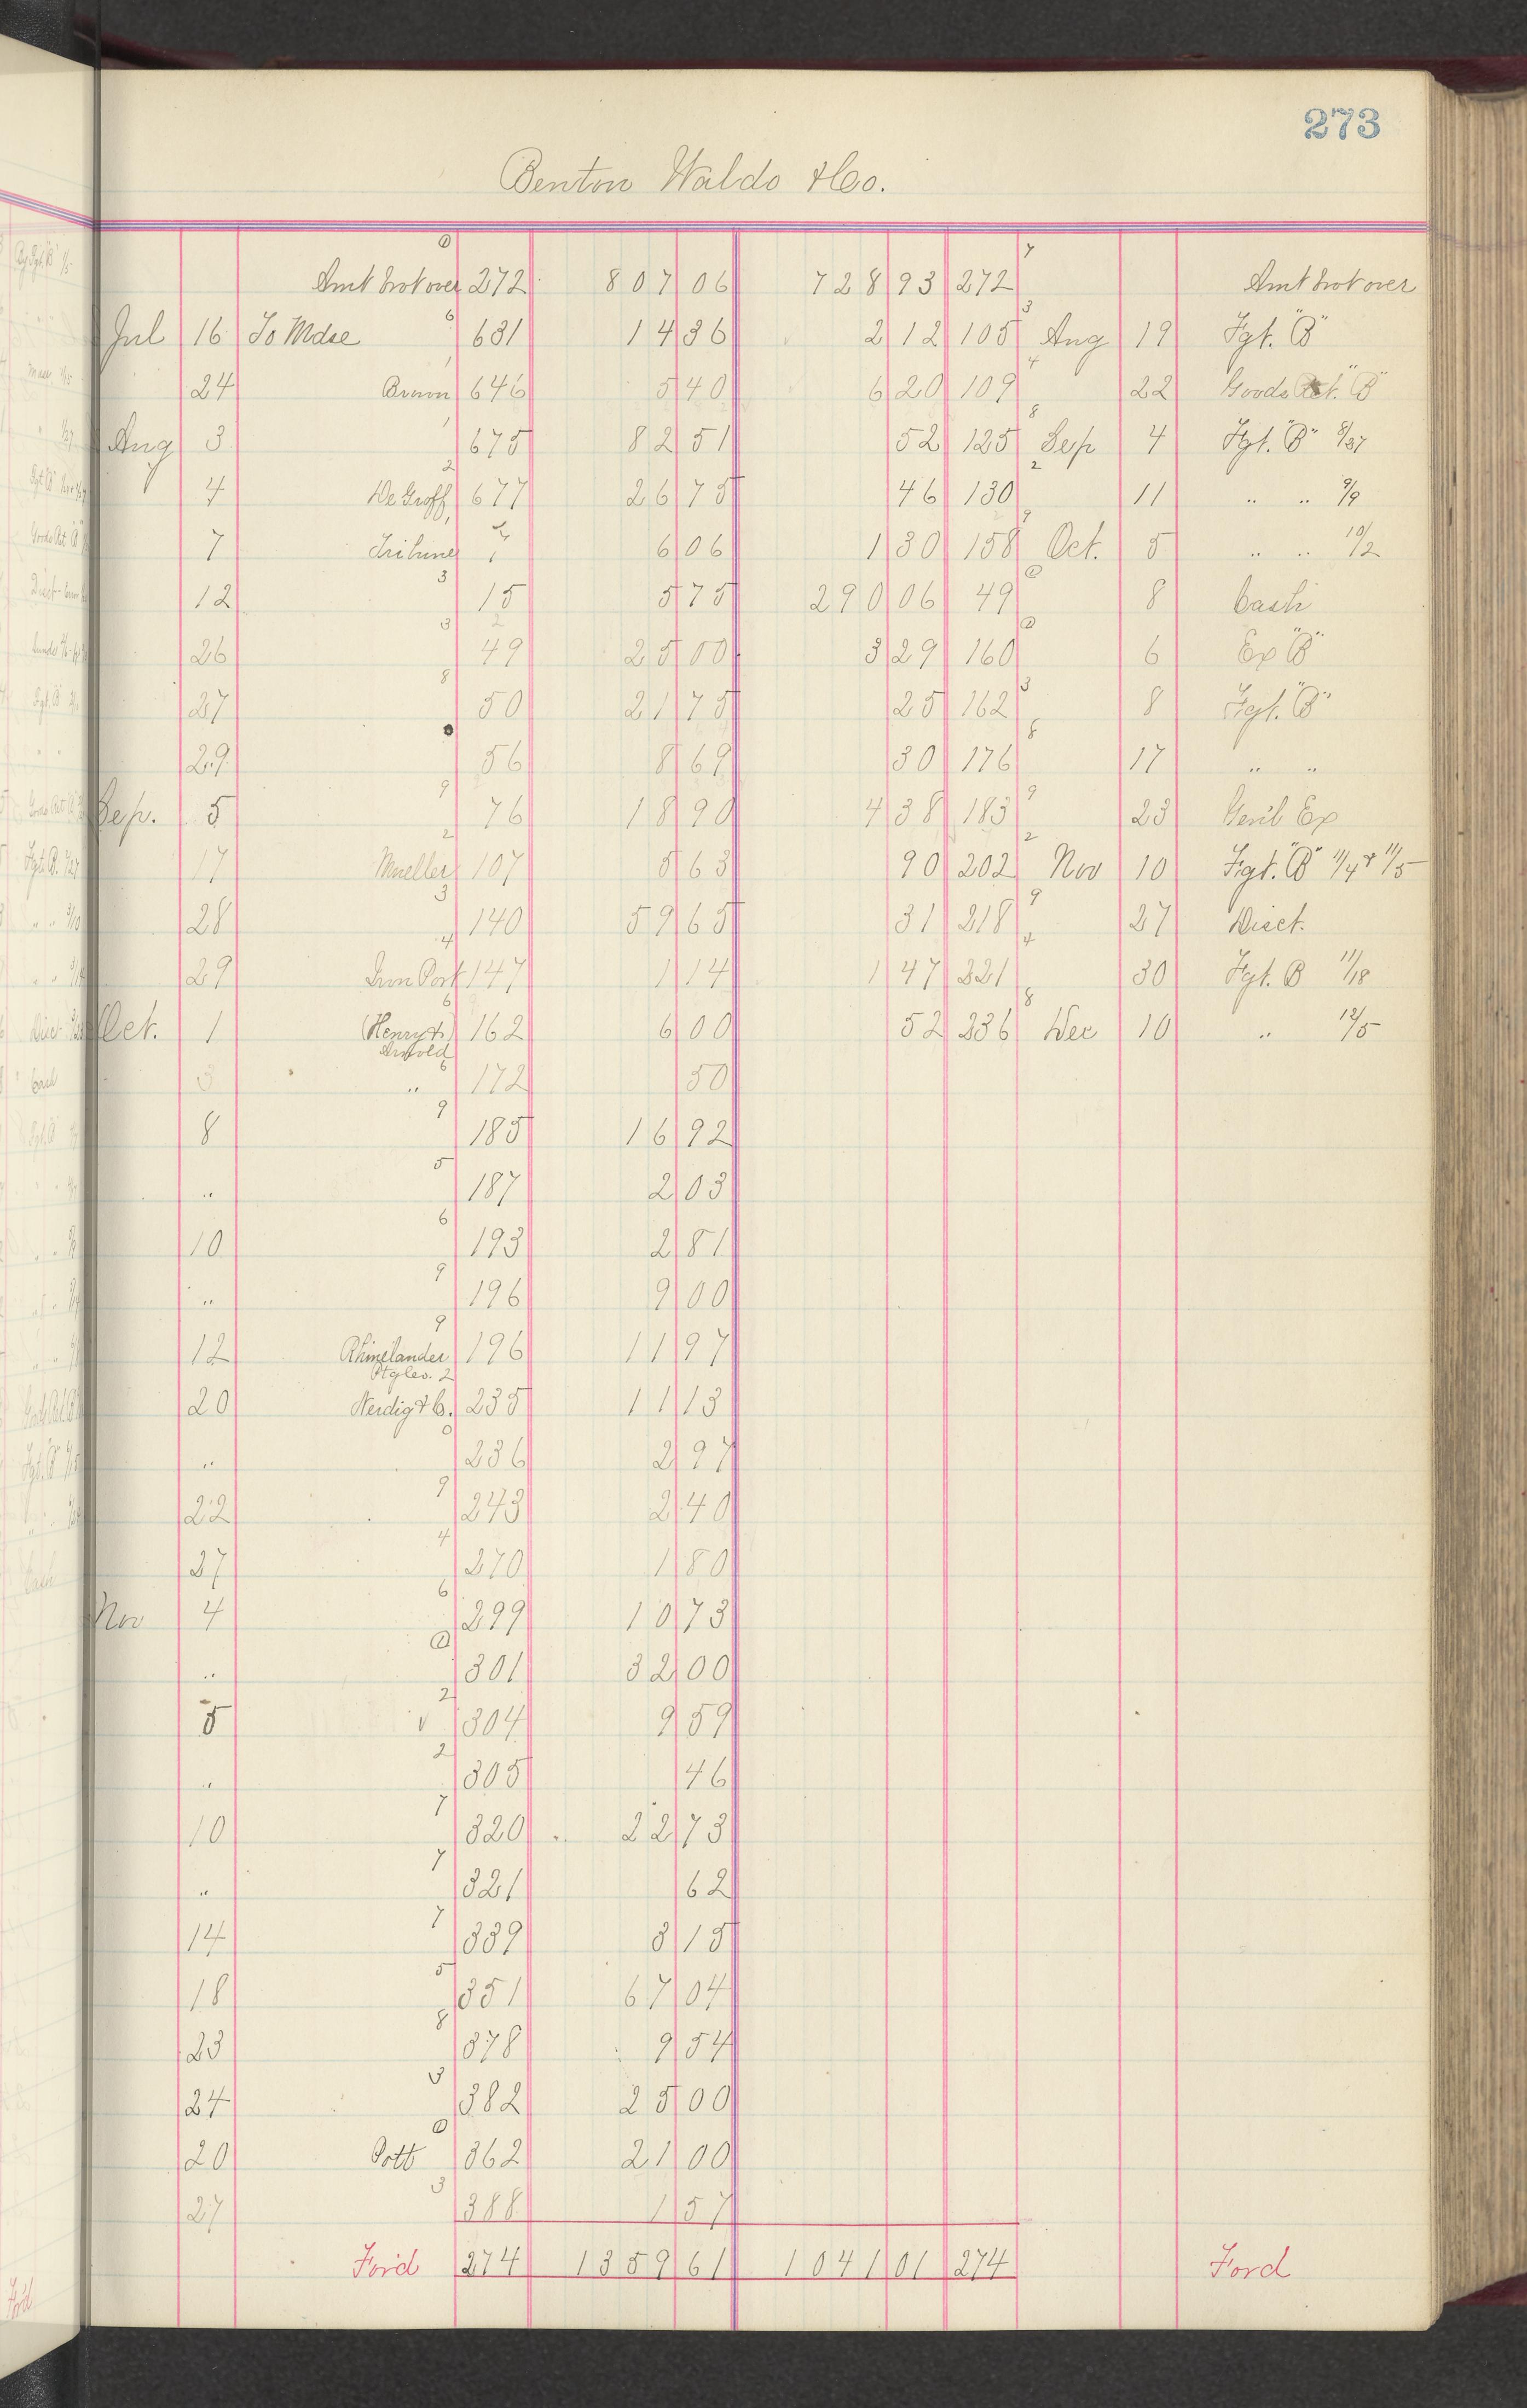 273
Benton Waldo & Co.
Amt brot over 272 807 06 728 93 272 Amt brot over
Jul 16 To Mdse 631 14 36 2 12 105 Aug 19 Fgt. "B"
24 646 5 40 6 20 109 22 Goods Ret. "B"
Aug 3 675 82 51 52 125 Sep 4 Fgt. "B" 8/27
4 De Groff 677 26 75 46 130 11 " " 9/9
7 Tribune 7 6 06 1 30 158 Oct. 5 " " 10/2
12 15 5 75 290 06 49 8 Cash
26 49 25 00 3 29 160 6 Ex "B"
27 50 21 75 25 162 8 Fgt. "B"
29 56 8 69 30 176 17 " "
Sep. 5 76 18 90 4 38 183 23 Genl Ex
17 Mueller 107 5 63 90 202 Nov 10 Fgt. "B" 11/4 & 11/5
28 140 59 65 31 218 27 Disct.
29 Iron Port 147 1 14 1 47 221 30 Fgt. B 11/18
Oct. 1 (Henry &) 162 6 00 52 236 Dec 10 " 12/5
Arnold
3 " 172 50
8 185 16 92
" 187 2 03
10 193 2 81
" 196 9 00
12 Rhinelander 196 11 97
Ptg Co. 2
20 Neidig & Co. 235 11 13
" 236 2 97
22 243 2 40
27 270 1 80
Nov 4 299 10 73
" 301 32 00
5 304 9 59
" 305 46
10 320 22 73
" 321 62
14 339 3 15
18 351 67 04
23 378 9 54
24 382 25 00
20 Pott 362 21 00
27 388 1 57
Ford 274 1359 61 1041 01 274 Ford